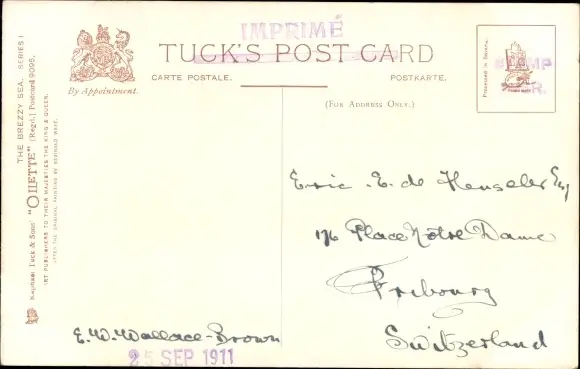 IMPRIMÉ
TUCK'S POST CARD
CARTE POSTALE.
POSTKARTE.
(FOR ADDRESS ONLY.)
By Appointment.
THE BREZZY SEA. SERIES I
Raphael Tuck & Sons' "OILETTE" [Regd.] Postcard 9095.
ART PUBLISHERS TO THEIR MAJESTIES THE KING & QUEEN.
AFTER THE ORIGINAL PAINTING BY REGINALD WEST.
Processed in Saxony.
STAMP
R.
Eric E. de Henseler Esq
176 Place Notre Dame
Fribourg
Switzerland
E. W. Wallace-Brown
25 SEP 1911